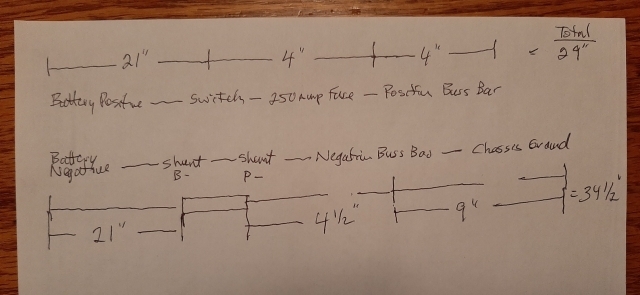 Total
21" 4" 4" < 29"
Battery Positive — Switch — 250 Amp Fuse — Positive Buss Bar
Battery Negative — Shunt B- — Shunt P- — Negative Buss Bar — Chassis Ground
21" 4 1/2" 9" = 34 1/2"